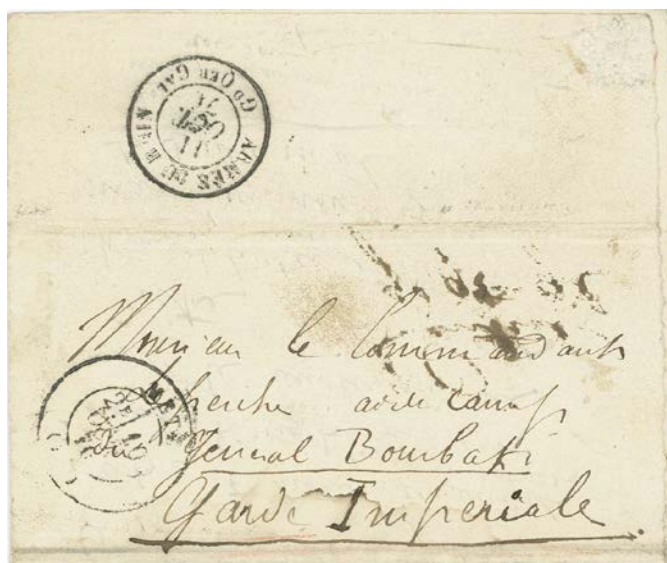 ARMÉE DU RHIN Gd QER GAL
11
Monsieur le Commandant
aide camp
du General Bourbaki
Garde Imperiale